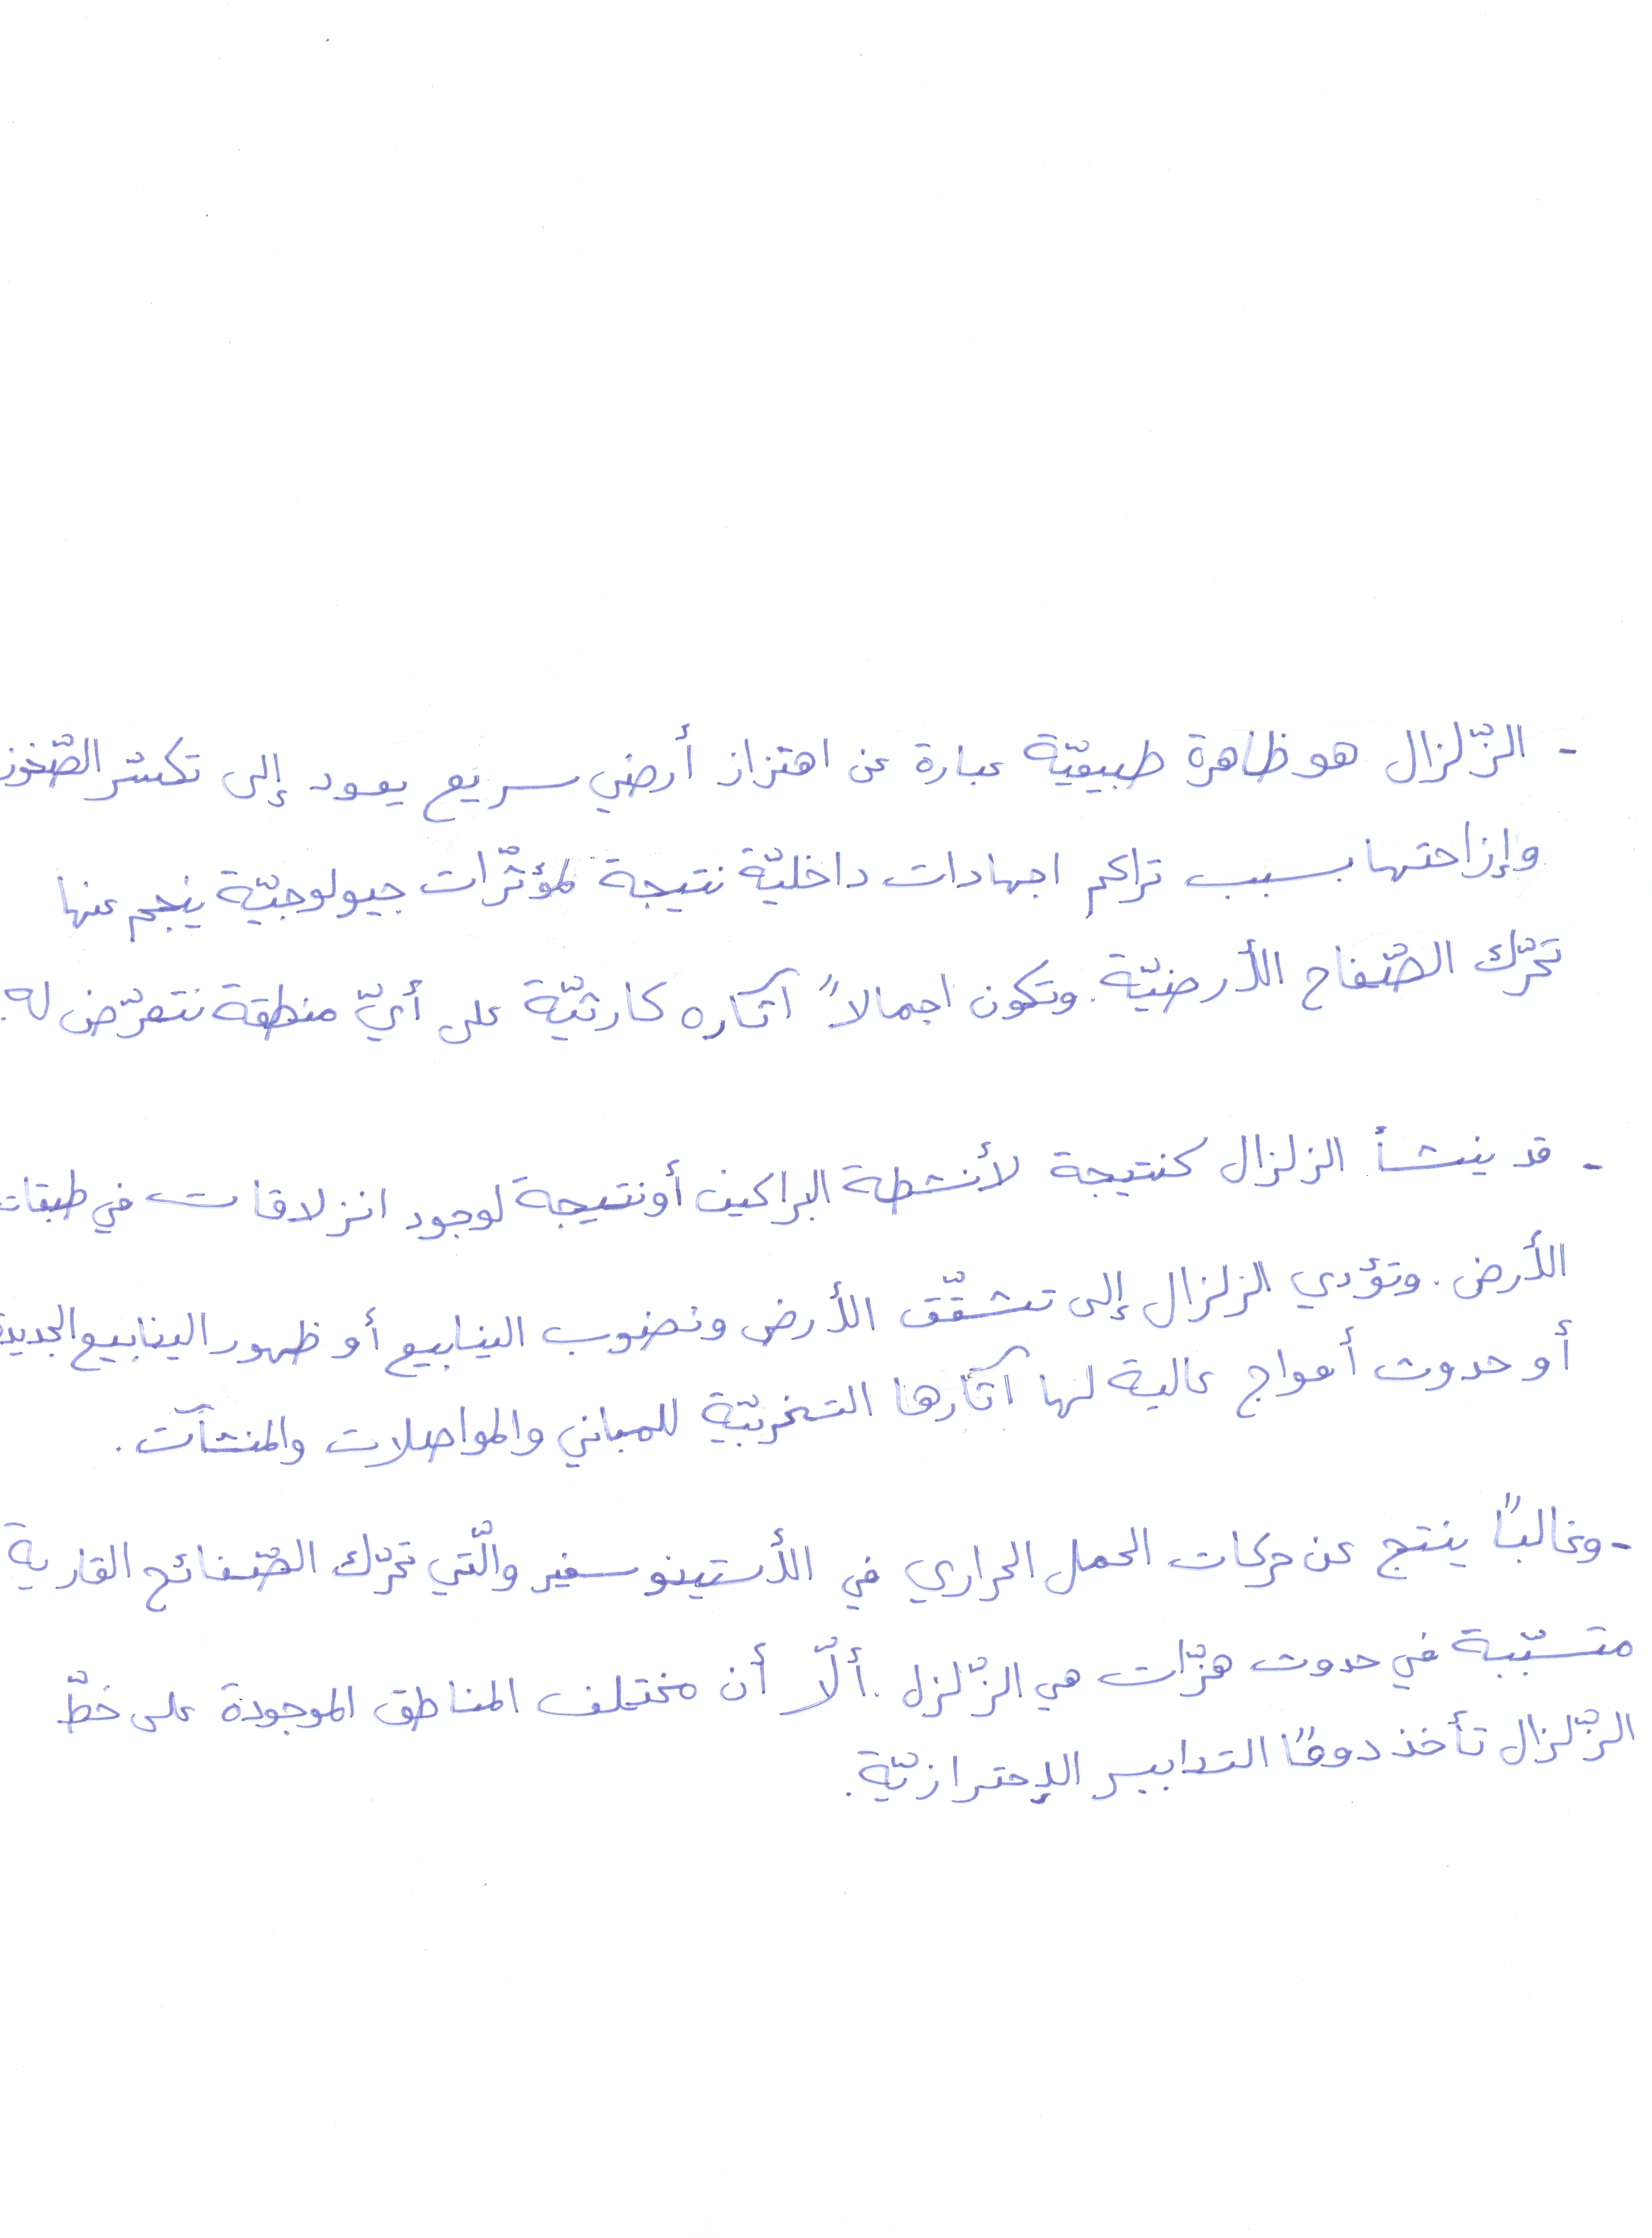 - الزّلزال هو ظاهرة طبيعيّة عبارة عن اهتزاز أرضي سريع يعود إلى تكسّر الصّخور
وإزاحتها بسبب تراكم اجهادات داخليّة نتيجة لمؤثّرات جيولوجيّة ينجم عنها
تحرّك الصّفاح الأرضيّة. وتكون اجمالاً آثاره كارثيّة على أيّ منطقة تتعرّض له.
- قد ينشأ الزلزال كنتيجة لأنشطة البراكين أو نتيجة لوجود انزلاقات في طبقات
الأرض. وتؤدي الزلزال إلى تشقّق الأرض ونضوب الينابيع أو ظهور الينابيع الجديدة
أو حدوث أمواج عالية لها آثارها التخريبيّة للمباني والمواصلات والمنشآت.
- وغالبًا ينتج عن حركات الحمل الحراري في الأستينوسفير والّتي تحرّك الصّفائح القارية
متسبّبة في حدوث هزّات هي الزّلزل. ألّا أن مختلف المناطق الموجودة على خطّ
الزّلزال تأخذ دومًا التدابير الإحترازيّة.